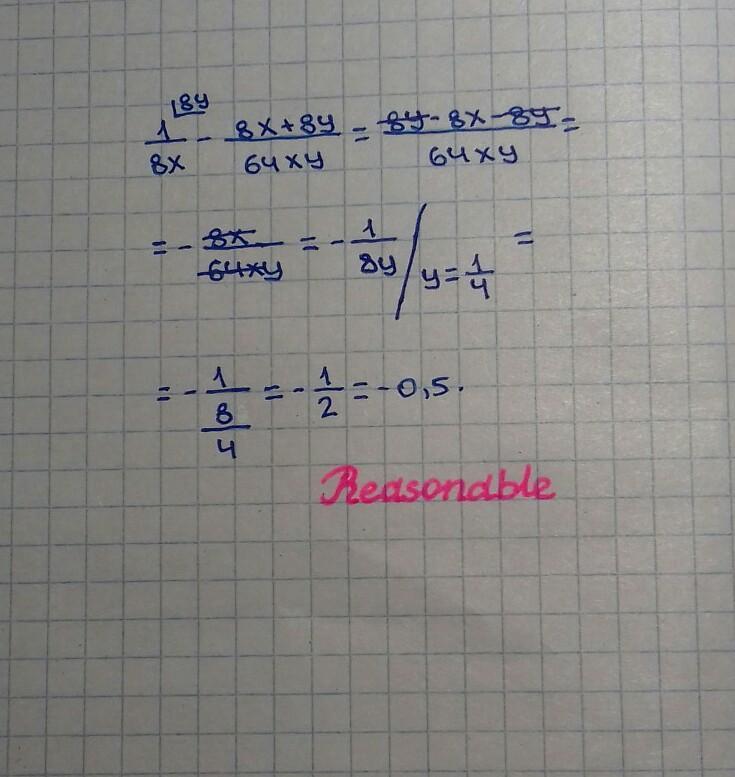 1/8x ⌊8y - (8x+8y)/64xy = (8y-8x-8y)/64xy =
= - 8x/64xy = - 1/8y / y=1/4 =
= - 1/(8/4) = - 1/2 = -0,5.
Reasonable